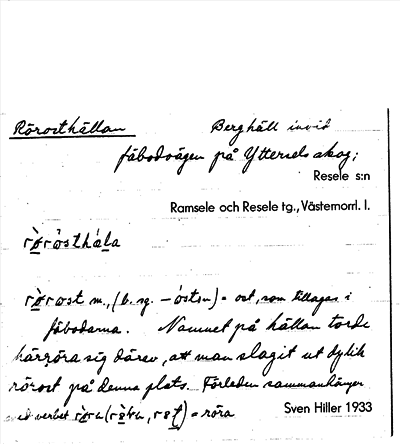 Rörosthällan Berghäll invid
fäbodvägen på Yttersels skog;
Resele s:n
Ramsele och Resele tg., Västernorrl. l.
rờ̱rósthá̱la
rờ̱rost m., (b. sg. –óstn) = ost, som tillagas i
fäbodarna. Namnet på hällan torde
härröra sig därav, att man slagit ut dylik
rörost på denna plats. Förleden sammanhänger
med verbet = röra
Sven Hiller 1933